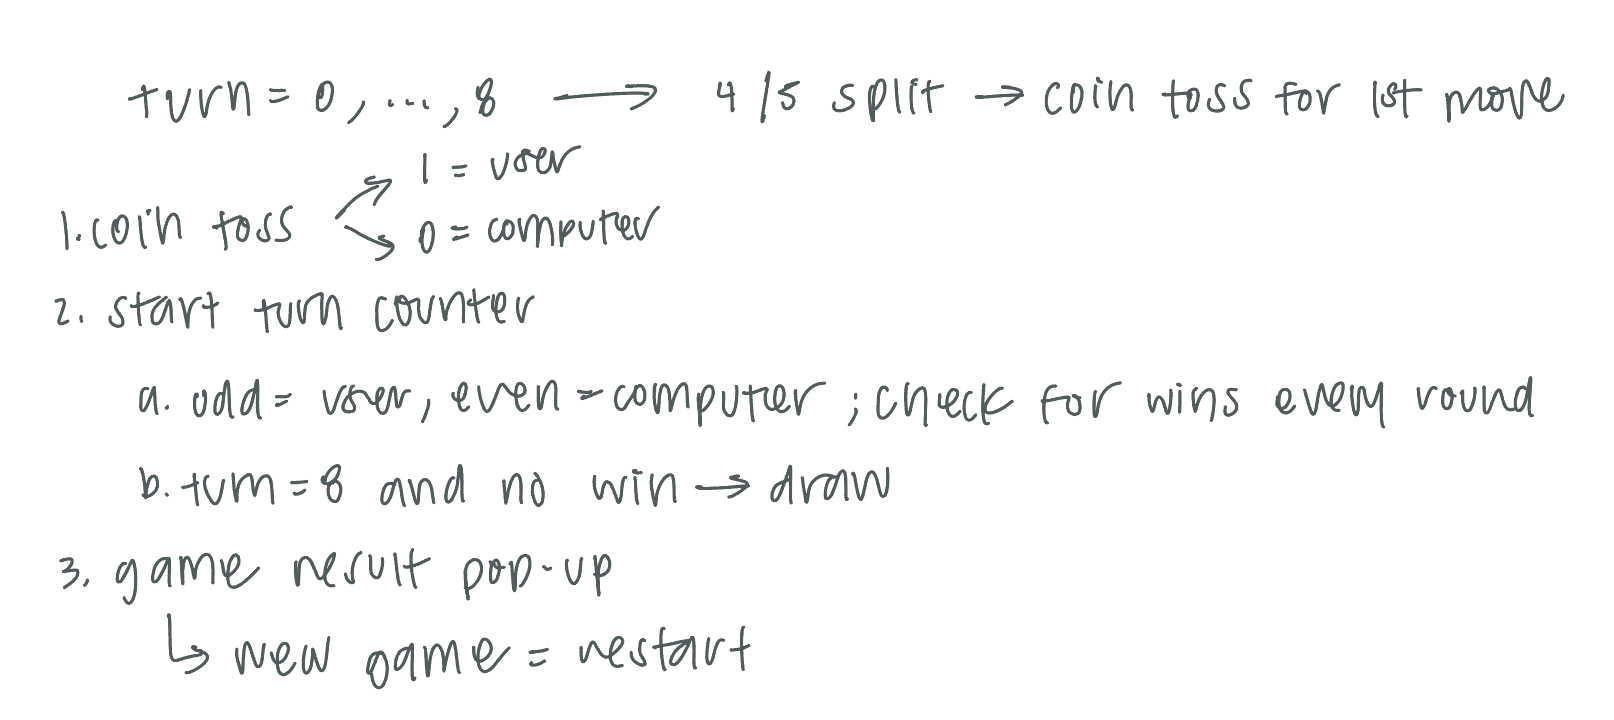 turn = 0, ..., 8 → 4/5 split → coin toss for 1st move
1 = user
1. coin toss
0 = computer
2. start turn counter
a. odd = user, even = computer ; check for wins every round
b. turn = 8 and no win → draw
3. game result pop-up
↳ new game = restart